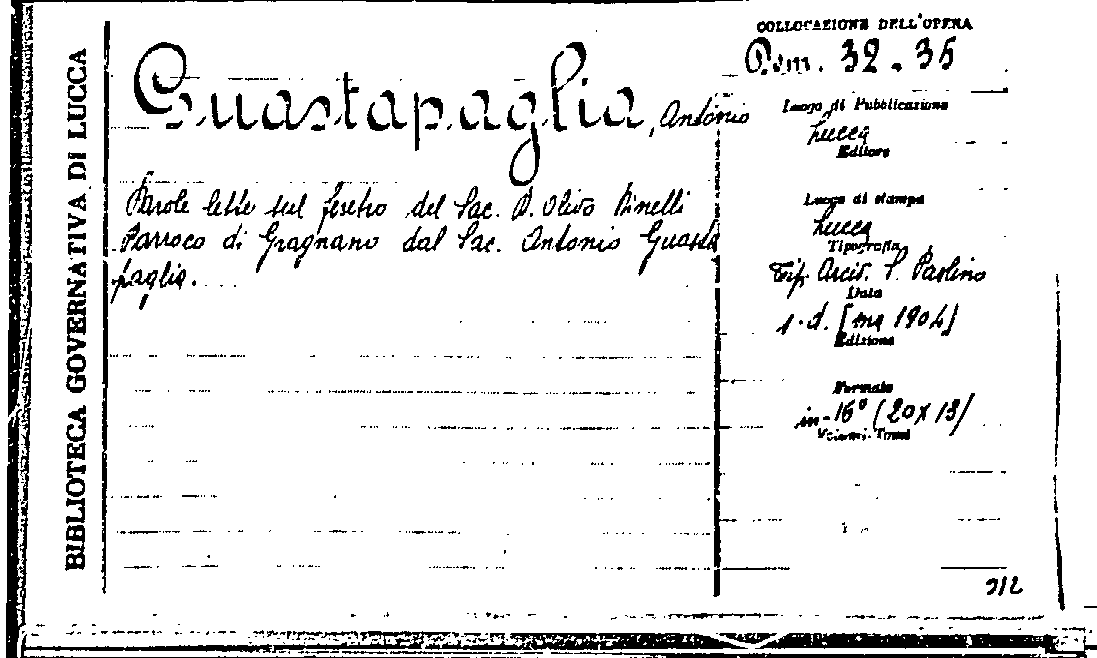 BIBLIOTECA GOVERNATIVA DI LUCCA
Guastapaglia, Antonio
Parole lette sul feretro del Sac. D. Olivo Pinelli
Parroco di Gragnano dal Sac. Antonio Guasta
paglia.
COLLOCAZIONE DELL'OPERA
32.35
Luogo di Pubblicazione
Lucca
Editore
Luogo di stampa
Lucca
Tipografia
Tip. Arciv. S. Paolino
Data
s.d. [ma 1904]
Edizione
Formato
in-16° (20x13)
Volumi-Tomi